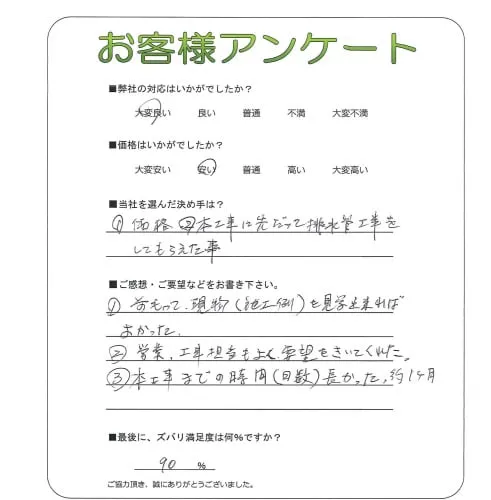 お客様アンケート
■弊社の対応はいかがでしたか？
大変良い 良い 普通 不満 大変不満
■価格はいかがでしたか？
大変安い 安い 普通 高い 大変高い
■当社を選んだ決め手は？
① 価格 ②本工事に先だって排水管工事を
してもらえた事
■ご感想・ご要望などをお書き下さい。
① 前もって、現物（施工例）を見学出来れば
よかった。
② 営業、工事担当もよく要望をきいてくれた。
③ 本工事までの時間（日数）長かった。約1ヶ月
■最後に、ズバリ満足度は何％ですか？
90 ％
ご協力頂き、誠にありがとうございました。